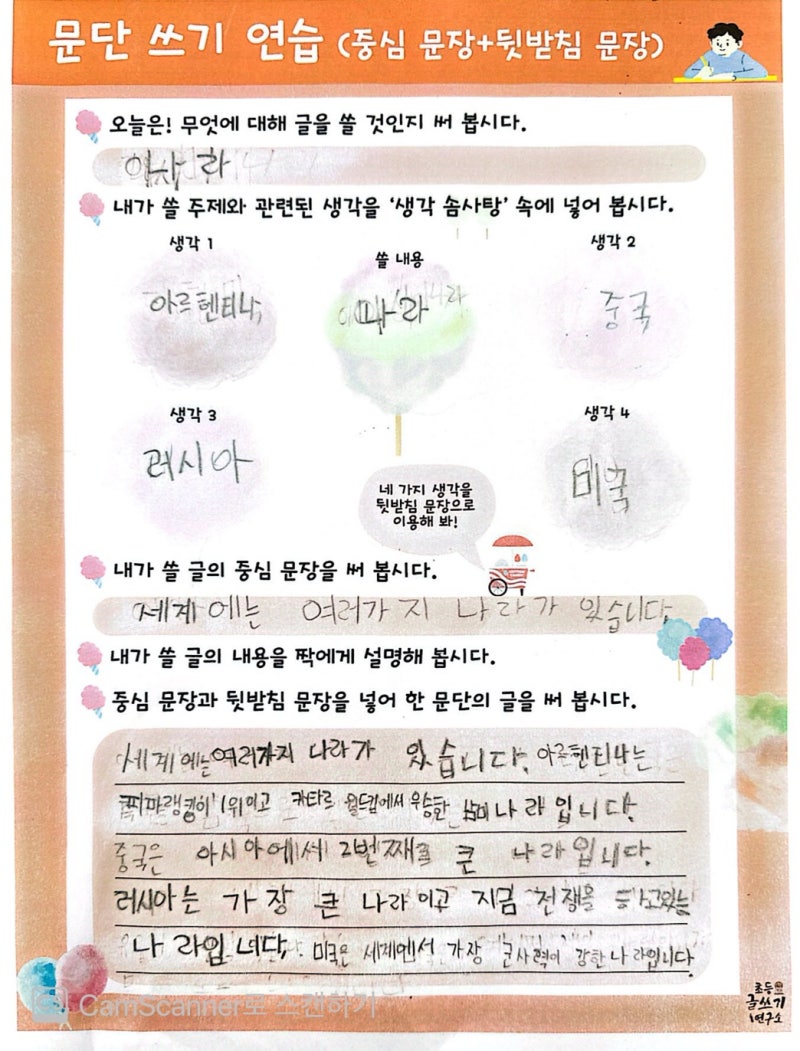 문단 쓰기 연습 (중심 문장+뒷받침 문장)
오늘은! 무엇에 대해 글을 쓸 것인지 써 봅시다.
내가 쓸 주제와 관련된 생각을 '생각 솜사탕' 속에 넣어 봅시다.
생각 1
쓸 내용
생각 2
아르헨티나
나라
중국
생각 3
생각 4
러시아
미국
네 가지 생각을
뒷받침 문장으로
이용해 봐!
내가 쓸 글의 중심 문장을 써 봅시다.
세계에는 여러가지 나라가 있습니다.
내가 쓸 글의 내용을 짝에게 설명해 봅시다.
중심 문장과 뒷받침 문장을 넣어 한 문단의 글을 써 봅시다.
세계에는 여러가지 나라가 있습니다. 아르헨티나는
피파랭킹이 1위이고 카타르 월드컵에서 우승한 남미나라입니다.
중국은 아시아에서 2번째로 큰 나라입니다.
러시아는 가장 큰 나라이고 지금 전쟁을 하고있는
나라입니다. 미국은 세계에서 가장 군사력이 강한나라입니다
CamScanner로 스캔하기
초등
글쓰기
연구소